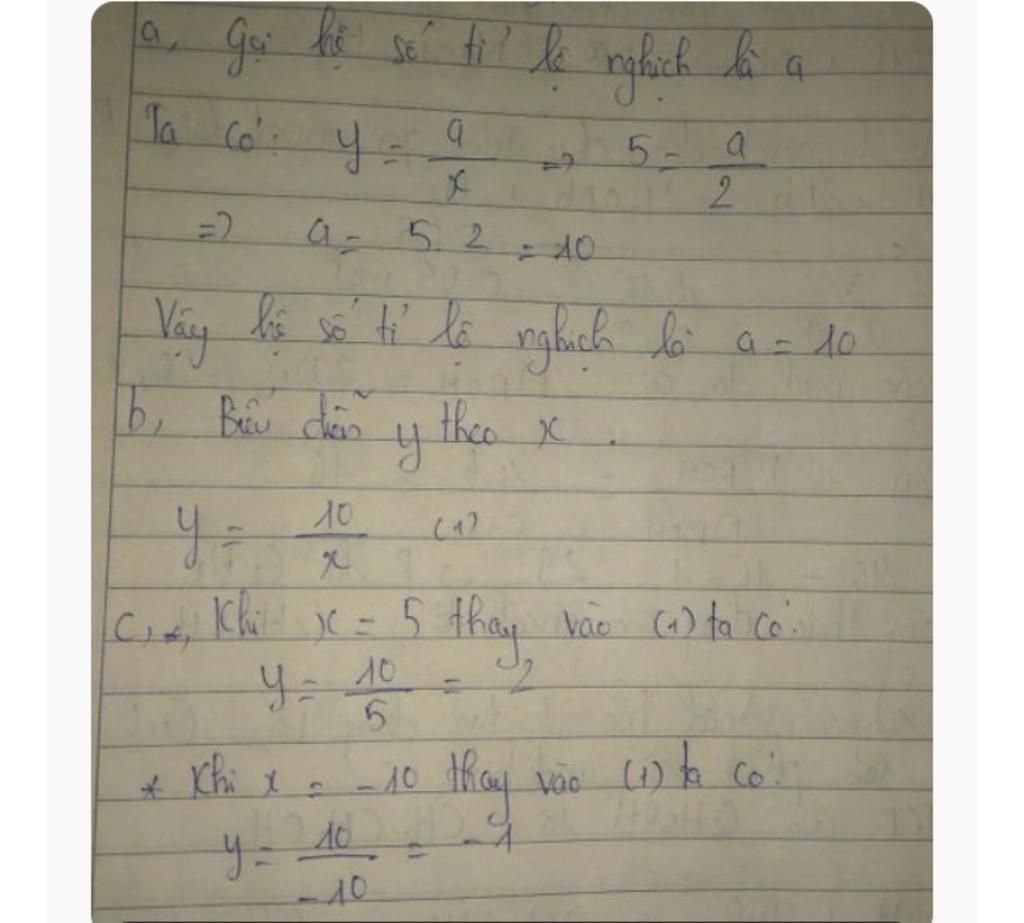 a, Gọi hệ số tỉ lệ nghịch là a
Ta có: y = a/x => 5 = a/2
=> a = 5.2 = 10
Vậy hệ số tỉ lệ nghịch là a = 10
b, Biểu diễn y theo x.
y = 10/x (1)
c, *, Khi x = 5 thay vào (1) ta có:
y = 10/5 = 2
* Khi x = -10 thay vào (1) ta có:
y = 10/-10 = -1